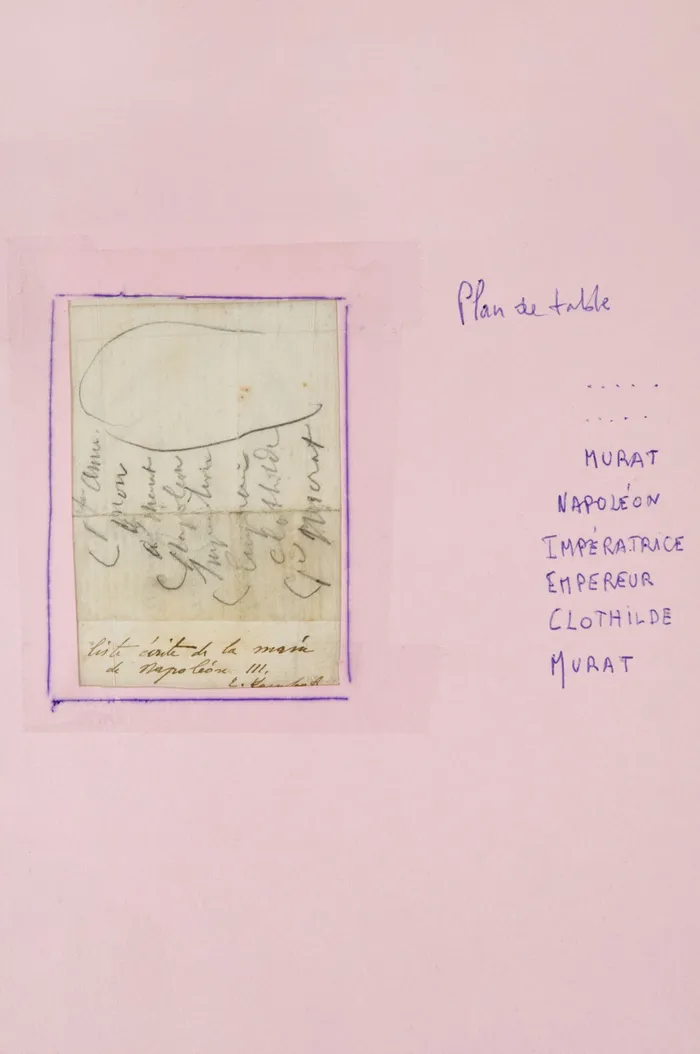 Anna
Napoléon
Clothilde
Murat
liste écrite de la main
de Napoléon III.
Plan de table
.....
.....
MURAT
NAPOLÉON
IMPÉRATRICE
EMPEREUR
CLOTHILDE
MURAT